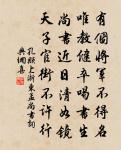 有個將軍不得名
唯教健卒喝書生
尚書近日清如鏡
天子官街不許行
孔上浙東孟尚書詞
典網